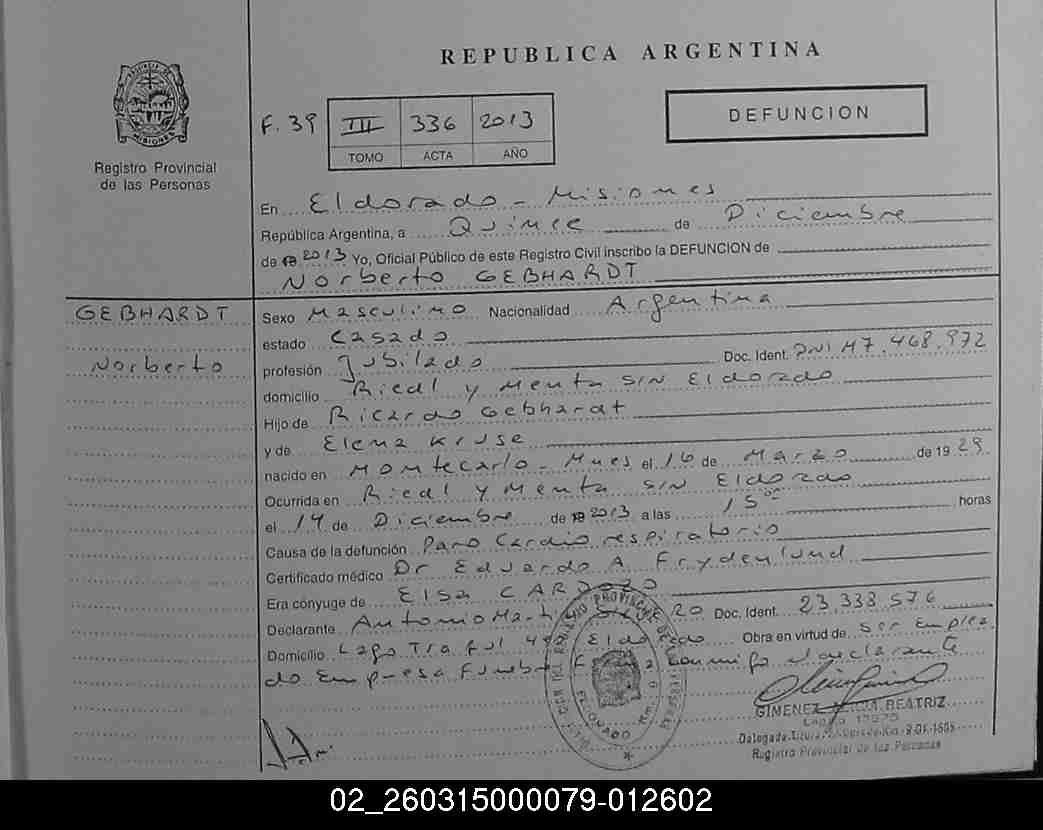 REPUBLICA ARGENTINA
PROVINCIA DE MISIONES
Registro Provincial
de las Personas
F. 39 III 336 2013
TOMO ACTA AÑO
DEFUNCION
En Eldorado - Misiones
República Argentina, a Quince de Diciembre
de 2013 Yo, Oficial Público de este Registro Civil inscribo la DEFUNCION de
Norberto GEBHARDT
GEBHARDT
Norberto
Sexo Masculino Nacionalidad Argentina
estado Casado
profesión Jubilado Doc. Ident. DNI M7.468.972
domicilio Riedl y Menta S/N Eldorado
Hijo de Ricardo Gebhardt
y de Elena Kruse
nacido en Montecarlo - Mnes el 16 de Marzo de 1929
Ocurrida en Riedl y Menta S/N Eldorado
el 14 de Diciembre de 2013 a las 15 horas
Causa de la defunción Paro Cardio respiratorio
Certificado médico Dr Eduardo A Frydenlund
Era cónyuge de Elsa CARDOZO
Declarante Antonio Doc. Ident. 23.338.576
Domicilio Lago Eldorado Obra en virtud de Ser Emplea
do Empresa Funebre Firma conmigo el declarante
GIMENEZ ALICIA BEATRIZ
Registro Provincial de las Personas
02_260315000079-012602